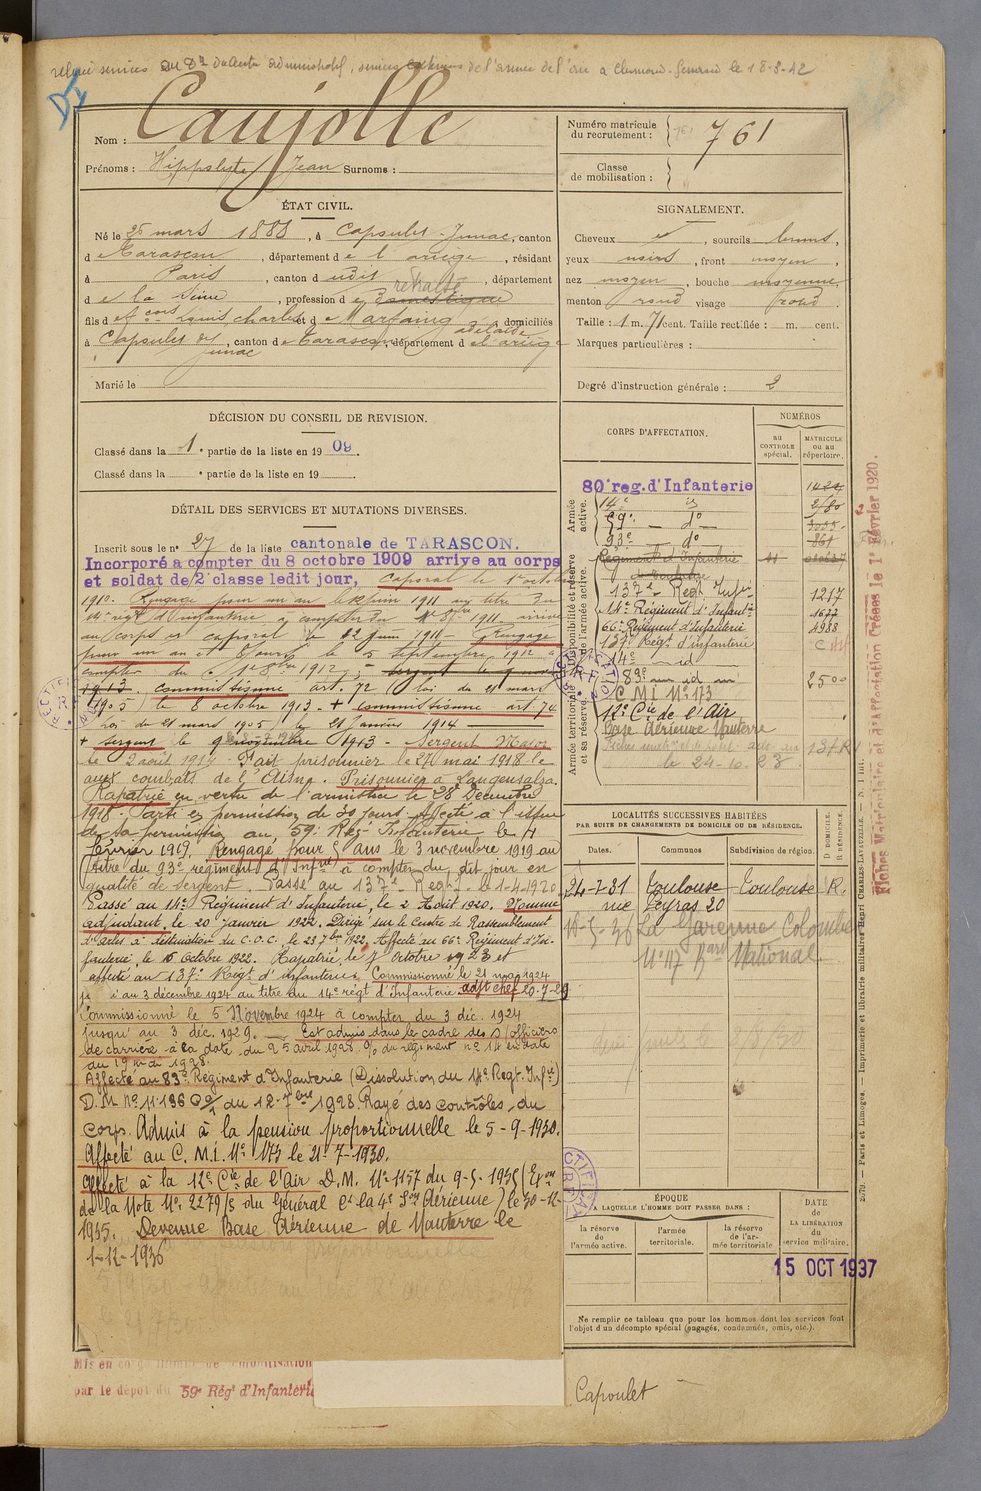 Nom : Caujolle
Prénoms : Hippolyte Jean Surnoms :
Numéro matricule
du recrutement : 761
Classe
de mobilisation :
ÉTAT CIVIL.
Né le 25 mars 1888, à Capoulet-Junac, canton
de Tarascon, département de l'ariège, résidant
à Paris, canton d udit, département
de la Seine, profession de domestique retraité
fils de Louis Charles et de Marfaing adélaïde domiciliés
à Capoulet Junac, canton de Tarascon, département de l'ariège
Marié le
SIGNALEMENT.
Cheveux et, sourcils bruns,
yeux noirs, front moyen,
nez moyen, bouche moyenne,
menton rond visage rond
Taille : 1 m. 71 cent. Taille rectifiée : m. cent.
Marques particulières :
Degré d'instruction générale : 2
DÉCISION DU CONSEIL DE REVISION.
Classé dans la 1e partie de la liste en 1909.
Classé dans la e partie de la liste en 19
DÉTAIL DES SERVICES ET MUTATIONS DIVERSES.
Inscrit sous le n° 27 de la liste cantonale de TARASCON.
Incorporé a compter du 8 octobre 1909 arrive au corps
et soldat de 2e classe ledit jour, caporal le 1er octobre
1910. Rengagé pour un an le juin 1911 au titre du
14e régt d'infanterie à compter du 1911 arrivé
au corps et caporal le 12 juin 1911 - Rengagé
pour un an et jours le 5 septembre 1912 à
compter du 1er 8bre 1912, sergent le 9 nov
1913. Commissionné art. 72 (loi du 21 mars
1905) le 8 octobre 1913 + Commissionné art. 74
loi du 21 mars 1905) le 21 janvier 1914
+ sergent le 9 novembre 1913 - Sergent Major
le 2 août 1914 - Fait prisonnier le 27 mai 1918 le
aux combats de l'Aisne. Prisonnier à Langensalza.
Rapatrié en vertu de l'armistice le 28 Décembre
1918. Parti en permission de 30 jours Affecté à l'issue
de sa permission au 59e Reg Infanterie le 4
février 1919. Rengagé pour 5 ans le 3 novembre 1919 au
titre du 93e regiment d'Infrie à compter du dit jour en
qualité de sergent. Passé au 137e Regt le 1-4-1920
Passé au 14e Régiment d'Infanterie, le 2 Août 1920. Nommé
adjudant, le 20 janvier 1922. Dirigé sur le Centre de Rassemblement
d'Arles à destination du C.O.C. le 23 7bre 1922, Affecté au 66e Régiment d'In-
fanterie, le 15 octobre 1922. Rapatrié le 7 octobre 1923 et
affecté au 137e Régt d'infanterie, Commissionné le 21 mars 1924
au 3 décembre 1924 au titre du 14e régt d'Infanterie adjt chef 20-7-29
Commissionné le 5 Novembre 1924 à compter du 3 déc. 1924
jusqu'au 3 déc. 1929. Est admis dans le cadre des S/officiers
de carrière à la date du 25 avril 1928 du régiment n° 14 en date
du 19 mai 1928.
Affecté au 83e Régiment d'Infanterie (Dissolution du 14e Regt Infie)
D.M. N° 11.196 du 12-7bre 1928. Rayé des contrôles du
corps. Admis à la pension proportionnelle le 5-9-1930.
Affecté au C.M.I. N° 173 le 21-7-1930.
Affecté à la 12e Cie de l'Air D.M. N° 1157 du 9-5-1935 (Exon
de la Note N° 2279/S du Général Ct la 4e Son Aérienne) le 30-12-
1935. Devenue Base Aérienne de Nanterre le
1-12-1936
Mis en congé illimité de démobilisation
par le dépot du 59e Régt d'Infanterie
CORPS D'AFFECTATION.
NUMÉROS
au
CONTROLE
spécial.
MATRICULE
ou au
répertoire.
Armée
active.
80e reg. d'Infanterie
14e
59e — do
93e do 861
Disponibilité et réserve
de l'armée active.
Régiment d'Infanterie
137e Regt Infie 1217
14e Régiment d'Infantie 1677
66e Régiment d'Infanterie 4988
137e Régt d'infanterie
14e id
83e id 2500
Armée territoriale
et sa réserve.
C.M.I. N° 173
12e Cie de l'Air
Base Aérienne Nanterre
le 24-10-23
LOCALITÉS SUCCESSIVES HABITÉES
PAR SUITE DE CHANGEMENTS DE DOMICILE OU DE RÉSIDENCE.
Dates. Communes Subdivision de région. D DOMICILE. R RÉSIDENCE.
24-7-31 Toulouse Toulouse R.
rue Peyras 20
18-5-36 La Garenne Colombes
N° 117 Bard National
ÉPOQUE
A LAQUELLE L'HOMME DOIT PASSER DANS :
la réserve
de
l'armée active.
l'armée
territoriale.
la réserve
de l'ar-
mée territoriale
DATE
de
LA LIBÉRATION
du
service militaire.
15 OCT 1937
Ne remplir ce tableau que pour les hommes dont les services font
l'objet d'un décompte spécial (engagés, condamnés, omis, etc.).
Capoulet
Fiches Matriculaire et d'Affectation Créées le 1er Février 1920.
Paris et Limoges. — Imprimerie et librairie militaires Henri CHARLES-LAVAUZELLE.